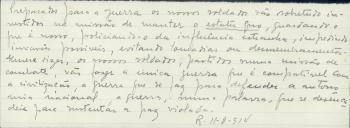 Preparados para a guerra os nossos soldados vão sobretudo in-
vestidos na missão de manter o estatu quo, guardando o
que é nosso, policiando-o da influência estranha, impedindo
invasões possíveis, evitando tomadias ou desmembramentos.
os nossos soldados, partidos numa missão de
combate, vão fazer a única guerra que é compatível com
a civilização, a guerra que se faz para defender a autono-
mia nacional, a guerra, numa palavra, que se desenca-
deia para sustentar a paz violada.
R. 11-8-914